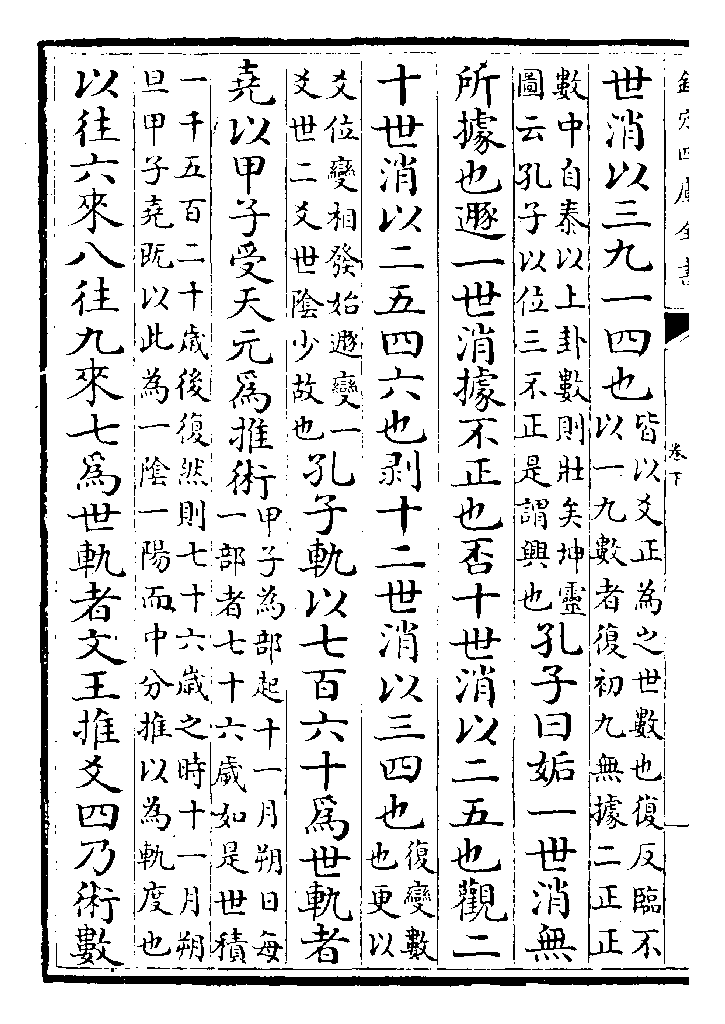 欽定四庫全書
卷下
世消以三九一四也皆以爻正為之世數也復反臨不
以一九數者復初九無據二正正
數中自泰以上卦數則壯矣坤靈
圖云孔子以位三不正是謂興也孔子曰姤一世消無
所據也遯一世消據不正也否十世消以二五也觀二
十世消以二五四六也剥十二世消以三四也復變數
也更以
爻位變相發始遯變一
爻世二爻世陰少故也孔子軌以七百六十爲世軌者
堯以甲子受天元爲推術甲子為部起十一月朔日每
一部者七十六歲如是世積
一千五百二十歲後復然則七十六歲之時十一月朔
旦甲子堯既以此為一陰一陽而中分推以為軌度也
以往六來八往九來七爲世軌者文王推爻四乃術數